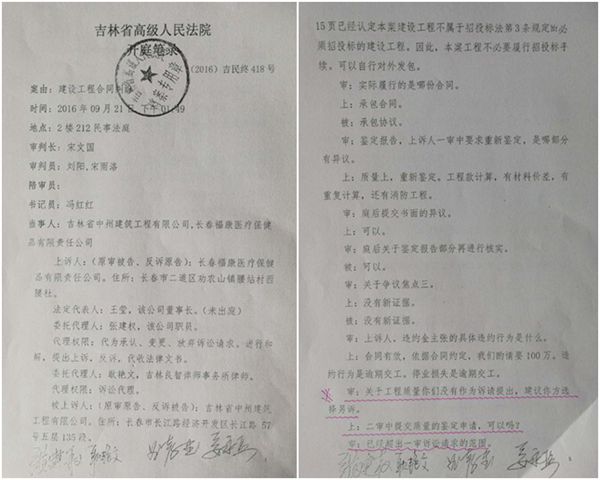 吉林省高级人民法院
开庭笔录
(2016)吉民终418号
案由：建设工程合同纠
时间：2016年09月21日 下午01:49
地点：2楼212民事法庭
审判长：宋文国
审判员：刘阳、宋雨洛
陪审员：
书记员：冯红红
当事人：吉林省中州建筑工程有限公司，长春福康医疗保健
品有限责任公司
上诉人：（原审被告、反诉原告）：长春福康医疗保健
品有限责任公司。住所：长春市二道区劝农山镇腰站村西
腰社。
法定代表人：王莹，该公司董事长。（未出庭）
委托代理人：张建权，该公司职员。
代理权限：代为承认、变更、放弃诉讼请求、进行和
解，提出上诉、反诉，代收法律文书。
委托代理人：耿艳文，吉林良智律师事务所律师。
代理权限：诉讼代理。
被上诉人：（原审原告、反诉被告）：吉林省中州建筑
工程有限公司。住所：长春市长江路经济开发区长江路57
号五层135段。
15页已经认定本案建设工程不属于招投标法第3条规定的必
须招投标的建设工程。因此，本案工程不必要履行招投标手
续，可以自行对外发包。
审：实际履行的是哪份合同。
上：承包合同。
被：承包协议。
审：鉴定报告，上诉人一审中要求重新鉴定，是哪部分
有异议。
上：质量上，重新鉴定。工程款计算，有材料价差，有
重复计算，还有消防工程。
审：庭后提交书面的异议。
上：可以。
审：庭后关于鉴定报告部分再进行核实。
被：可以。
审：关于争议焦点三。
上：没有新证据。
被：没有新证据。
审：上诉人，违约金主张的具体违约行为是什么。
上：合同有效，依据合同约定，我们酌情要100万。违
约行为是逾期交工。停业损失是逾期交工。
审：关于工程质量你们没有作为诉请提出，建议你方选
择另诉。
上：二审中提交质量的鉴定申请，可以吗？
审：已经超出一审诉讼请求的范围。